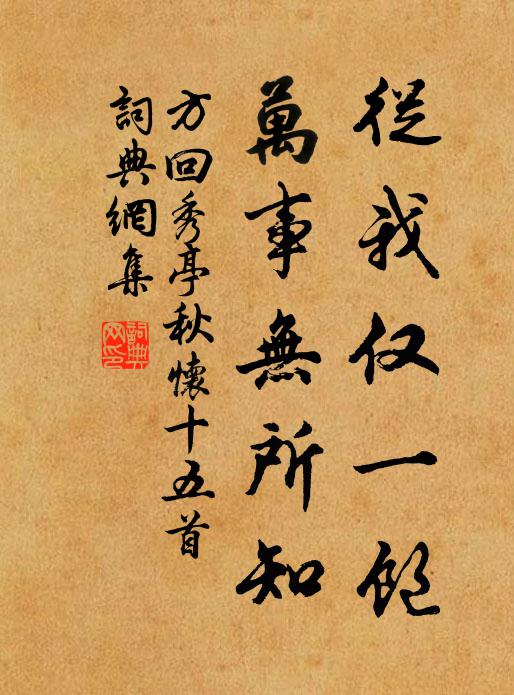 從我仅一飽
萬事無所知
方回秀亭秋懷十五首
詞典網集
詞典網印